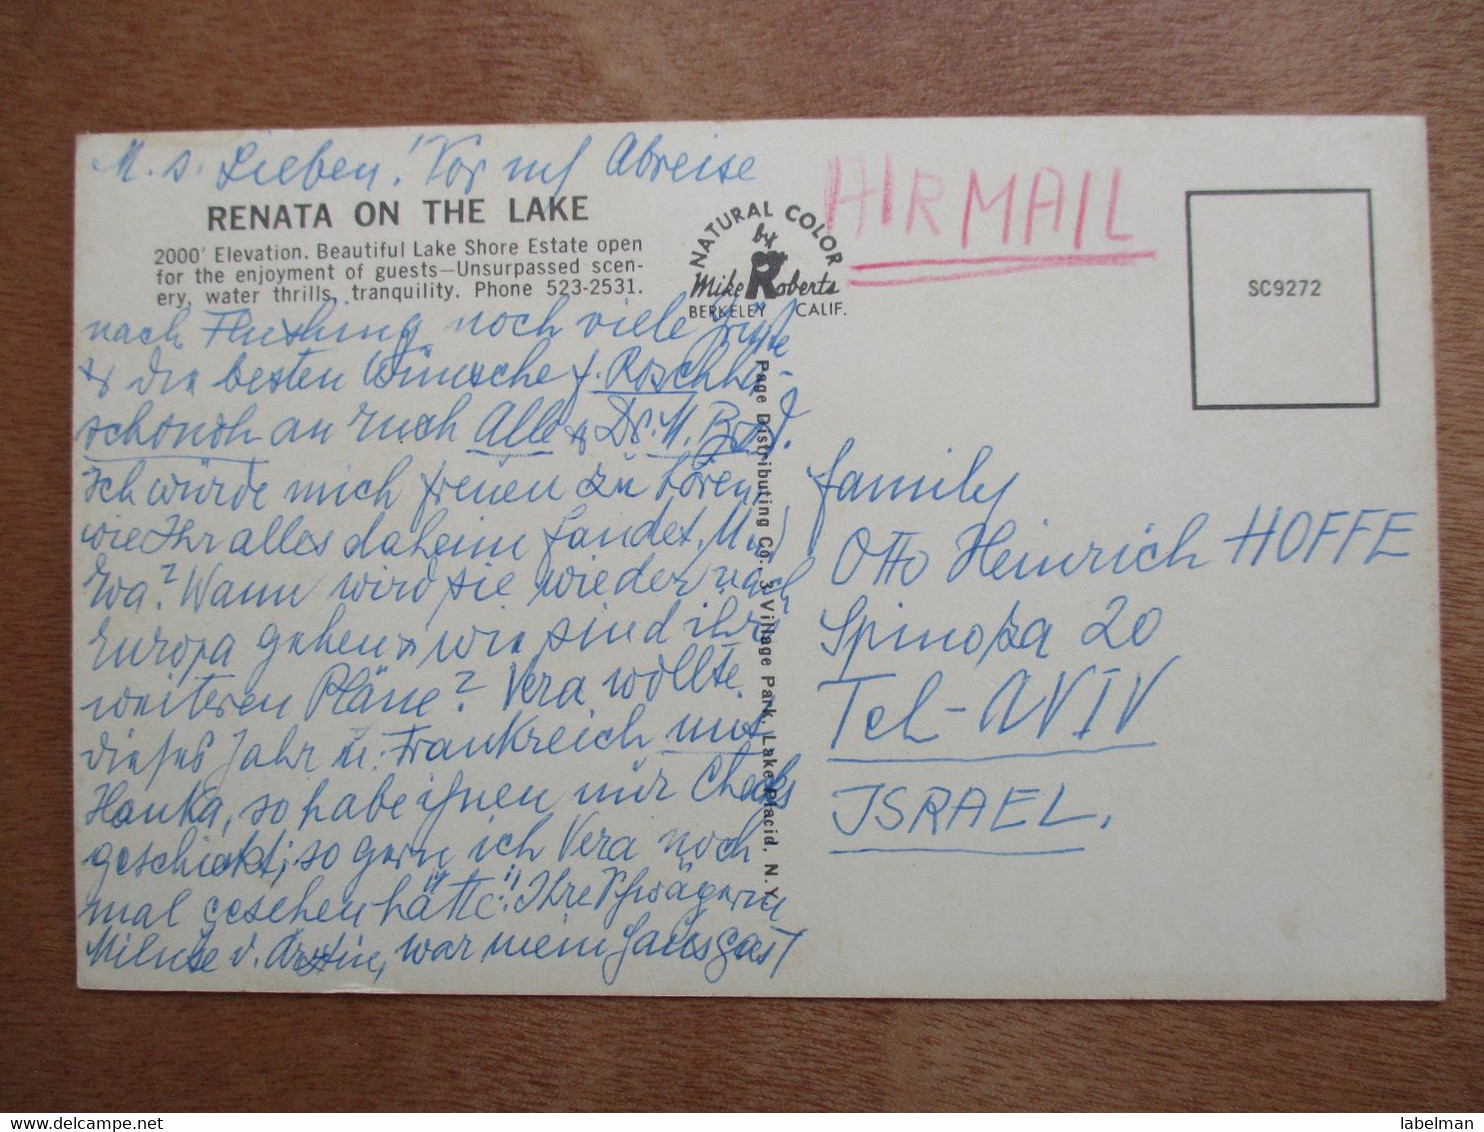 M. s. Lieben! Vor m/ Abreise
RENATA ON THE LAKE
2000' Elevation. Beautiful Lake Shore Estate open
for the enjoyment of guests—Unsurpassed scen-
ery, water thrills, tranquility. Phone 523-2531.
nach Flushing noch viele Grüße
& die besten Wünsche f. Roschha-
schonoh an Euch Alle & Dr. M.
Ich würde mich freuen zu hören,
wie Ihr alles daheim fandet. M
Eva? Wann wird sie wieder nach
Europa gehen & wie sind ihre
weiteren Pläne? Vera wollte
dieses Jahr n. Frankreich mit
Hanka, so habe ihnen nur Checks
geschickt; so gern ich Vera noch
mal gesehen hätte! Ihre Schwägerin
Miluše d. Ärztin, war mein Hausgast
NATURAL COLOR
by
Mike Roberts
BERKELEY CALIF.
Page Distributing Co., 3 Village Park, Lake Placid, N.Y.
AIRMAIL
SC9272
family
Otto Heinrich HOFFE
Spinoza 20
Tel-AVIV
ISRAEL.
labelman
www.delcampe.net